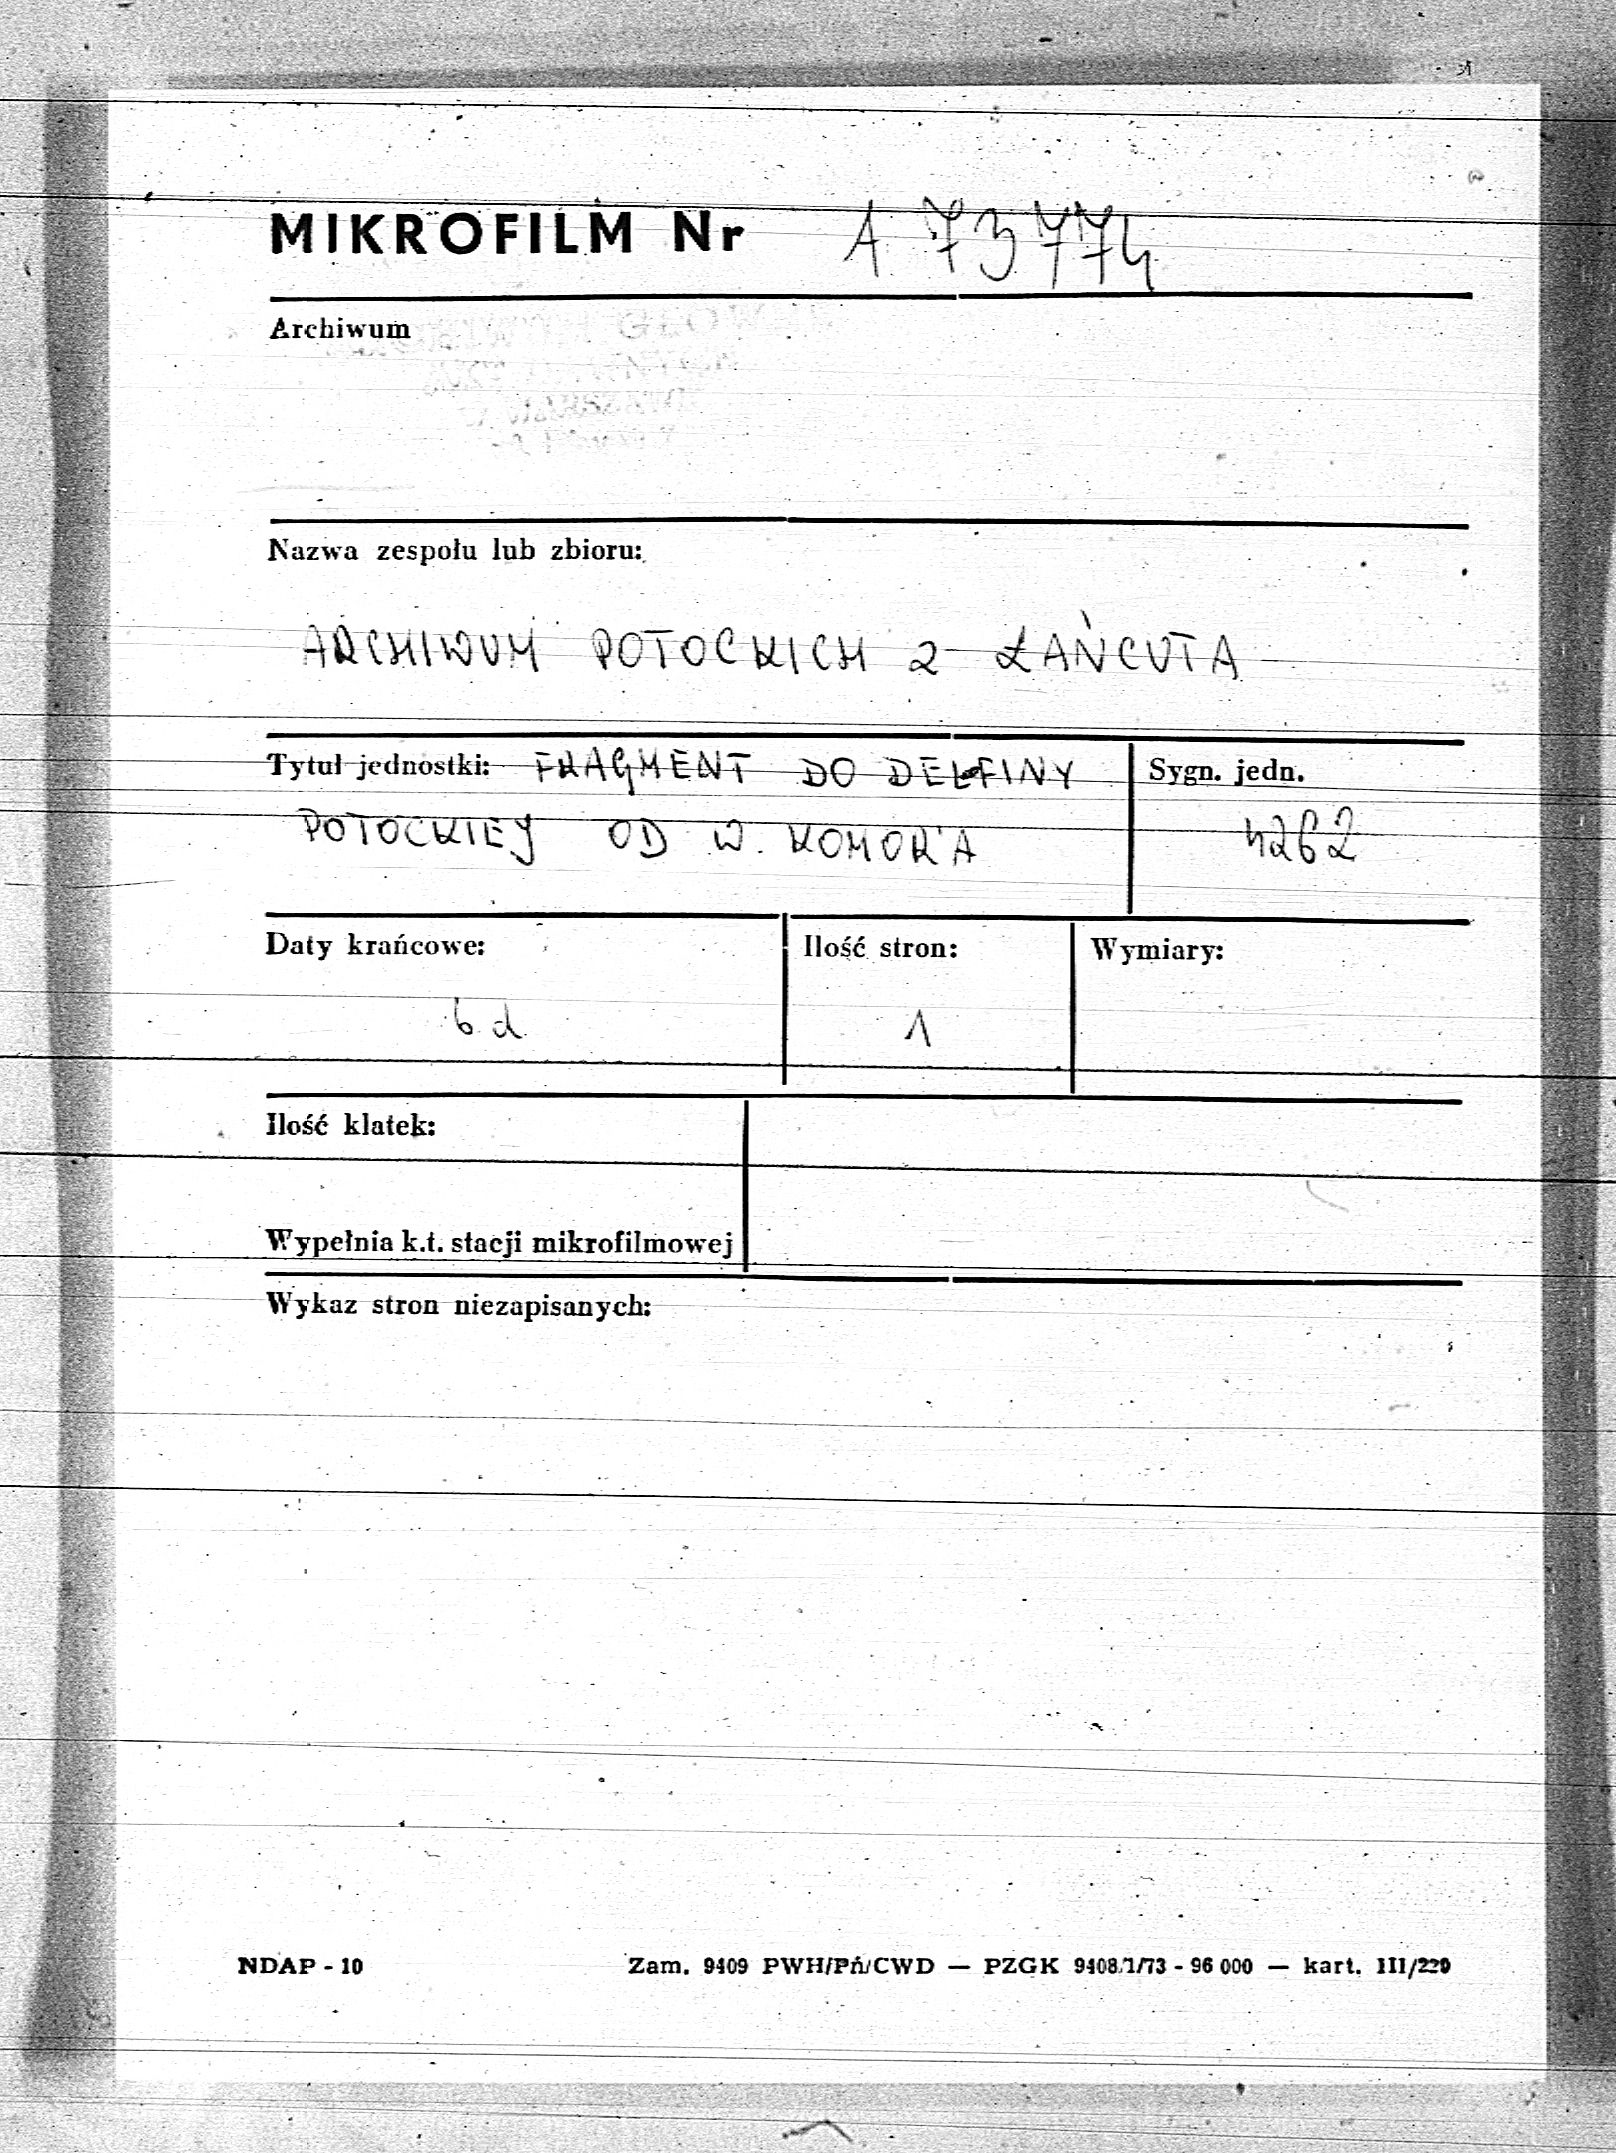 MIKROFILM Nr A 73774
Archiwum
Nazwa zespołu lub zbioru:
ARCHIWUM POTOCKICH Z ŁAŃCUTA
Tytuł jednostki: FRAGMENT DO DELFINY
POTOCKIEJ OD W. KOMORA
Sygn. jedn.
4262
Daty krańcowe:
b d
Ilość stron:
1
Wymiary:
Ilość klatek:
Wypełnia k.t. stacji mikrofilmowej
Wykaz stron niezapisanych:
NDAP - 10
Zam. 9409 PWH/Pń/CWD — PZGK 9408/1/73 - 96 000 — kart. III/220